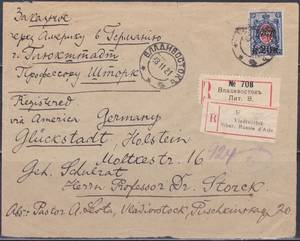 Заказное
чрез Америку в Германию
г. Глюкштадт
Профессору Шторк
Registered
via America Germany
Glückstadt, Holstein
Moltkestr. 16
Geh. Schulrat
Herrn Professor Dr. Storck
Abs: Pastor A. Lota, Vladivostock, Puschkinskaja 20
ВЛАДИВОСТОКЪ
№ 708
Владивостокъ
Лит. В.
R
Vladivostok
Sibér. Russie d'Asie
124